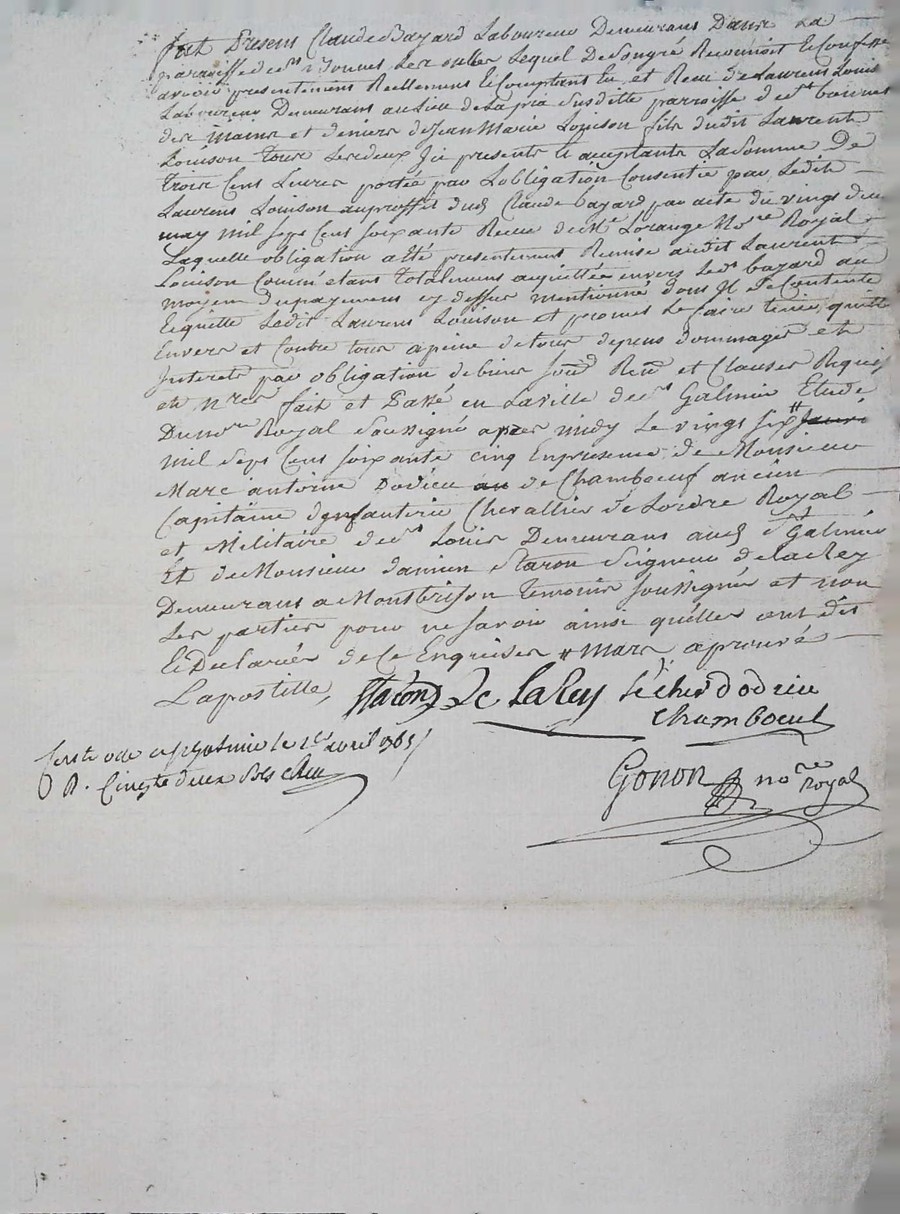 fut Présens Claude Bayard Laboureur Demeurans Dans La
parroisse de st Bonnet Les oulles Lequel De Son gré Reconnoit & Confesse
avoir présentement Reellement & Comptant Eu et Receu de Laurens Louison
Laboureur Demeurans au Lieu de La pra Susditte parroisse de st bonnet
des mains et deniers de Jean Marie Loüison fils dudit Laurent
Loüison tous Lesdeux Ici présents & acceptants La Somme De
trois Cens Livres portée par Lobligation Consentie par Ledit
Laurens Loüison au proffit dud Claude bayard par acte du vingt deux
may mil sept Cens soixante Receu de Me Lorange Nore Royal
Laquelle obligation a été présentement Remise audit Laurent
Loüison Comme étans totalement acquittée envers Led bayard au
moyen du payement cy dessus mentionné dons Il Se Contente
& quitte Ledit Laurens Loüison et promet Le faire tenir quitte
Envers et Contre tous a peine de tous depens dommages et
Interets par obligation de biens Soud Renon et Clauses Requises
et Nres fait et Passé en La ville de st Galmier Etude
Du nore Royal Soussigné apres midy Le vingt six #
mil Sept Cens soixante cinq En présence de Monsieur
Marc antoine Dodieu de Chamboeuf ancien
Capitaine dynfanterie Chevallier de Lordre Royal
et Militaire de st Louis Demeurans aud St Galmier
Et de Monsieur damien Staron Seigneur de La Rey
Demeurans a Montbrison temoins soussignés et non
Les parties pour ne savoir ainsi quelles ont dit
& Declarées de Ce Enquises # mars aprouvé
Lapostille,
Staron De La Rey Le cher dodieu
Chamboeuf
Conte alle a st galmie le 1er avril 1765
R. Cinqte deux sols
Gonon nore
Royal